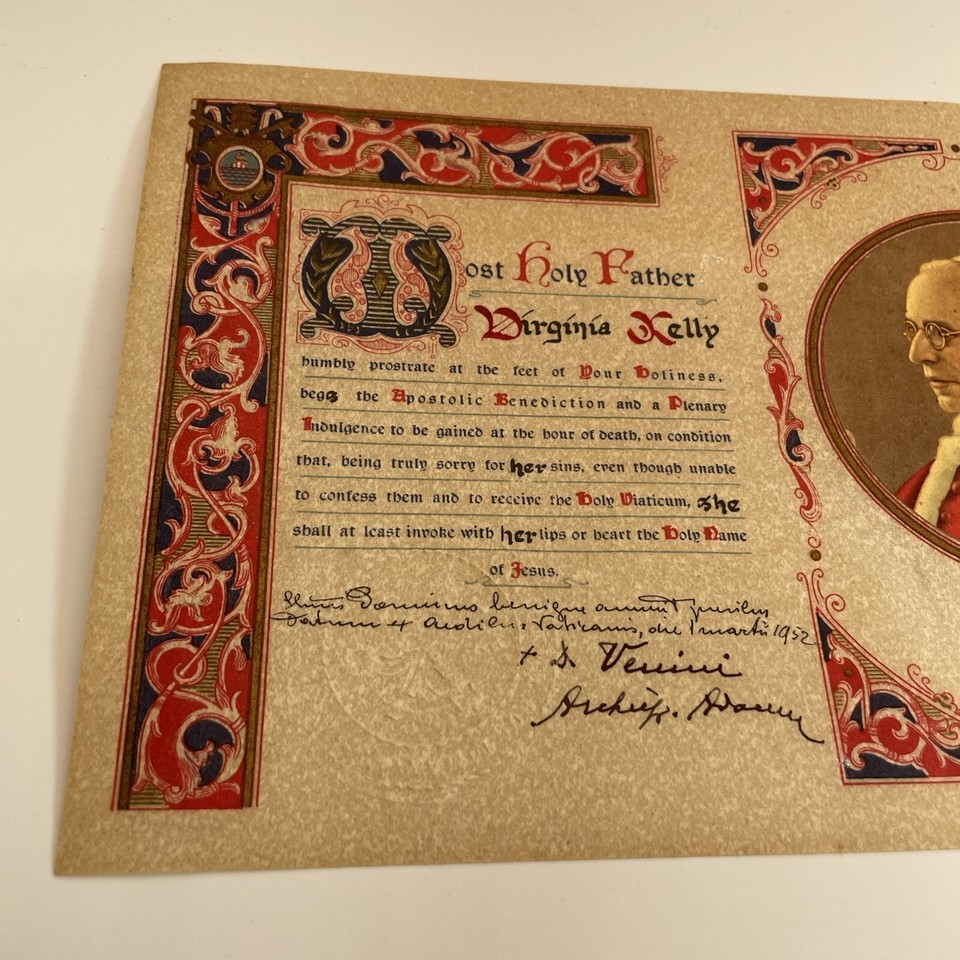 Most Holy Father
Virginia Kelly
humbly prostrate at the feet of Your Holiness,
begs the Apostolic Benediction and a Plenary
Indulgence to be gained at the hour of death, on condition
that, being truly sorry for her sins, even though unable
to confess them and to receive the Holy Viaticum, she
shall at least invoke with her lips or heart the Holy Name
of Jesus.
Dominus benigne annuit precibus
Datum ex Aedibus Vaticanis, die 1 martii 1952
+ D. Venini
Archiep.